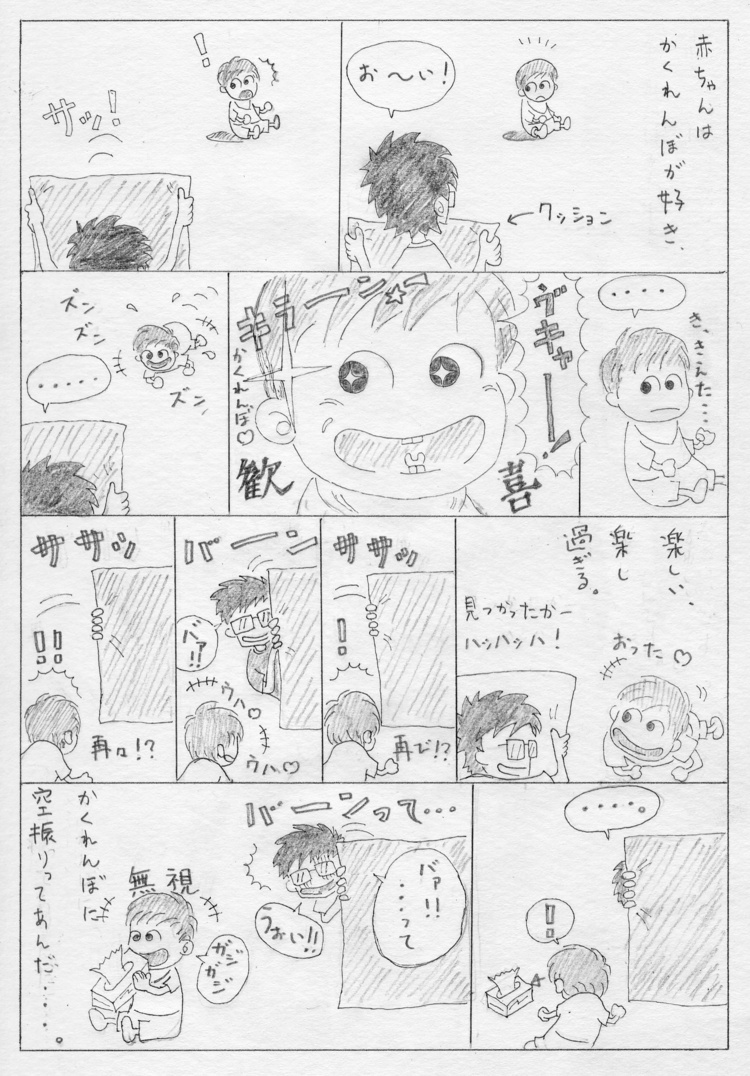 赤ちゃんは
かくれんぼが好き、
お〜い!
←クッション
!
サッ!
・・・・
き、きえた・・・
ヴキャーー!
キラーン☆
かくれんぼ♡
歓
喜
ズン
ズン
ズン
・・・・・
楽しい、
楽し
過ぎる。
見つかったかー
ハッハッハ!
おった♡
ササッ
!
再び!?
バーン
バァ!!
ウハ♡
ウハ♡
ササッ
!!
再々!?
・・・・。
!
バーンって・・・
バァ!!
・・・って
うおい!!
無視
ガジ
ガジ
かくれんぼに
空振りってあんだ・・・・。